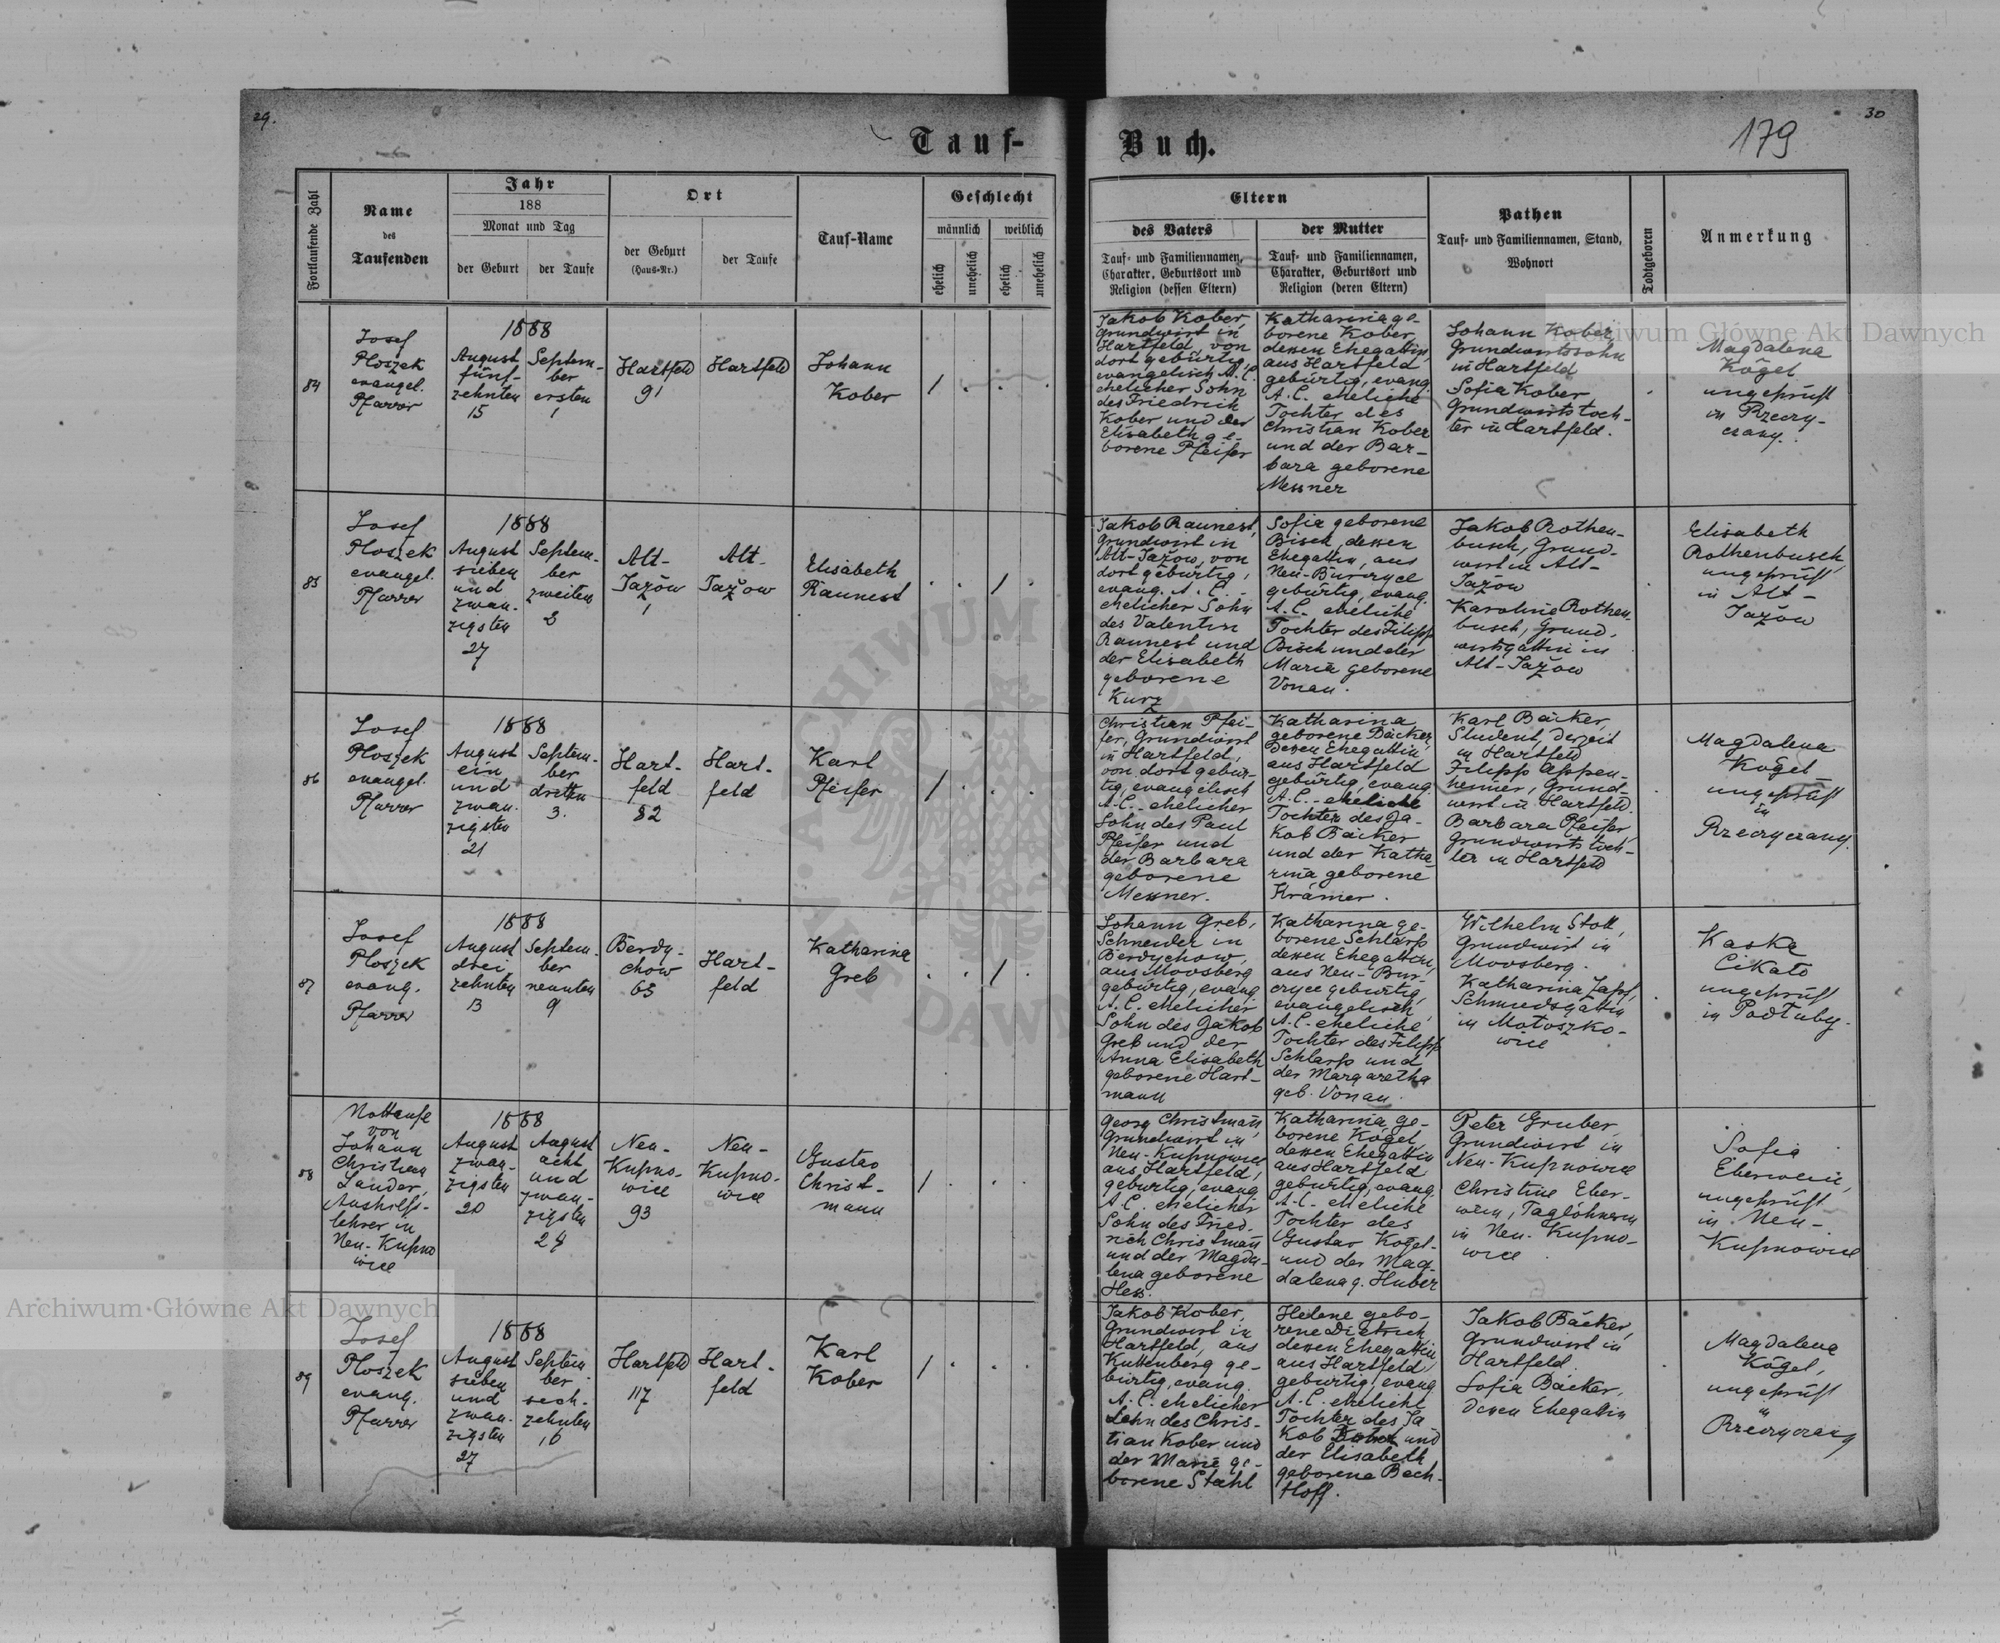 29.
30
179
Tauf-
Buch.
Fortlaufende Zahl
Name
des
Taufenden
Jahr
188
Monat und Tag
der Geburt
der Taufe
Ort
der Geburt
(Haus-Nr.)
der Taufe
Tauf-Name
Geschlecht
männlich
weiblich
ehelich
unehelich
ehelich
unehelich
Eltern
des Vaters
Tauf- und Familiennamen,
Charakter, Geburtsort und
Religion (dessen Eltern)
der Mutter
Tauf- und Familiennamen,
Charakter, Geburtsort und
Religion (deren Eltern)
Pathen
Tauf- und Familiennamen, Stand,
Wohnort
Todtgeboren
Anmerkung
84
Josef
Ploszek
evangel.
Pfarrer
1888
August
fünf-
zehnten
15
Septem-
ber
ersten
1
Hartfeld
91
Hartfeld
Johann
Kober
/
Jakob Kober
Grundwirt in
Hartfeld, von
dort gebürtig,
evangelisch A. C.
ehelicher Sohn
des Friedrich
Kober und der
Elisabeth ge-
borene Pfeifer
Katharina ge-
borene Kober,
dessen Ehegattin,
aus Hartfeld
gebürtig, evang.
A. C. eheliche
Tochter des
Christian Kober
und der Bar-
bara geborene
Messner
Johann Kober,
Grundwirtssohn
in Hartfeld
Sofia Kober,
Grundwirtstoch-
ter in Hartfeld.
Magdalena
Kogel
ungeprüft
in Rzeczy-
czany.
85
Josef
Ploszek
evangel.
Pfarrer
1888
August
sieben
und
zwan-
zigsten
27
Septem-
ber
zweiten
2
Alt-
Jażow
1
Alt-
Jażow
Elisabeth
Raunest
/
Jakob Raunest,
Grundwirt in
Alt-Jażow, von
dort gebürtig,
evang. A. C.
ehelicher Sohn
des Valentin
Raunest und
der Elisabeth
geborene
Kurz
Sofia geborene
Bisch, dessen
Ehegattin, aus
Neu-Burczyce
gebürtig, evang.
A. C. eheliche
Tochter des Filipp
Bisch und der
Maria geborene
Vonau.
Jakob Rothen-
busch, Grund-
wirt in Alt-
Jażow
Karoline Rothen-
busch, Grund-
wirtsgattin in
Alt-Jażow
Elisabeth
Rothenbusch,
ungeprüft
in Alt-
Jażow
86
Josef
Ploszek
evangel.
Pfarrer
1888
August
ein
und
zwan-
zigsten
21
Septem-
ber
dritten
3.
Hart-
feld
82
Hart-
feld
Karl
Pfeifer
/
Christian Pfei-
fer, Grundwirt
in Hartfeld,
von dort gebür-
tig, evangelisch
A. C. ehelicher
Sohn des Paul
Pfeifer und
der Barbara
geborene
Messner.
Katharina
geborene Bäcker,
dessen Ehegattin,
aus Hartfeld
gebürtig, evang.
A. C. eheliche
Tochter des Ja-
kob Bäcker
und der Katha-
rina geborene
Krämer.
Karl Bäcker,
Student, derzeit
in Hartfeld
Filipp Appen-
heimer, Grund-
wirt in Hartfeld
Barbara Pfeifer,
Grundwirtstoch-
ter in Hartfeld
Magdalena
Kogel
ungeprüft
in
Rzeczyczany.
87
Josef
Ploszek
evang.
Pfarrer
1888
August
drei
zehnten
13
Septem-
ber
neunten
9
Berdy-
chow
63
Hart-
feld
Katharina
Greb
/
Johann Greb,
Schneider in
Berdychow,
aus Moosberg
gebürtig, evang.
A. C. ehelicher
Sohn des Jakob
Greb und der
Anna Elisabeth
geborene Hart-
mann
Katharina ge-
borene Schlarp
dessen Ehegattin,
aus Neu-Bur-
czyce gebürtig,
evangelisch
A. C. eheliche
Tochter des Filipp
Schlarp und
der Margaretha
geb. Vonau.
Wilhelm Stoll,
Grundwirt in
Moosberg.
Katharina Zapf,
Schmiedsgattin
in Motoszko-
wice
Kaska
Cikalo
ungeprüft
in Podtuby.
88
Nottaufe
von
Johann
Christian
Lander,
Aushilfs-
lehrer in
Neu-Kupno
wice
1888
August
zwan-
zigsten
20
August
acht
und
zwan-
zigsten
28
Neu-
Kupno-
wice
93
Neu-
Kupno-
wice
Gustav
Christ-
mann
/
Georg Christmañ,
Grundwirt in
Neu-Kupnowice,
aus Hartfeld,
gebürtig, evang.
A. C. ehelicher
Sohn des Fried-
rich Christmañ
und der Magda-
lena geborene
Hess.
Katharina ge-
borene Kogel,
dessen Ehegattin
aus Hartfeld
gebürtig, evang.
A. C. eheliche
Tochter des
Gustav Kogel
und der Mag-
dalena g. Huber
Peter Gruber,
Grundwirt in
Neu-Kupnowice
Christine Eber-
wein, Taglöhnerin
in Neu-Kupno-
wice
Sofia
Eberwein,
ungeprüft
in Neu-
Kupnowice
89
Josef
Ploszek
evang.
Pfarrer
1888
August
sieben
und
zwan-
zigsten
27
Septem
ber
sech-
zehnten
16
Hartfeld
117
Hart-
feld
Karl
Kober
/
Jakob Kober,
Grundwirt in
Hartfeld, aus
Kuttenberg ge-
bürtig, evang.
A. C. ehelicher
Sohn des Chris-
tian Kober und
der Marie ge-
borene Stahl
Helene gebo-
rene Dietrich
dessen Ehegattin
aus Hartfeld,
gebürtig, evang.
A. C. eheliche
Tochter des Ja-
kob und
der Elisabeth
geborene Bach-
Hoff.
Jakob Bäcker,
Grundwirt in
Hartfeld.
Sofia Bäcker,
dessen Ehegattin
Magdalena
Kogel,
ungeprüft
in
Rzeczyczany
Archiwum Główne Akt Dawnych
Archiwum Główne Akt Dawnych